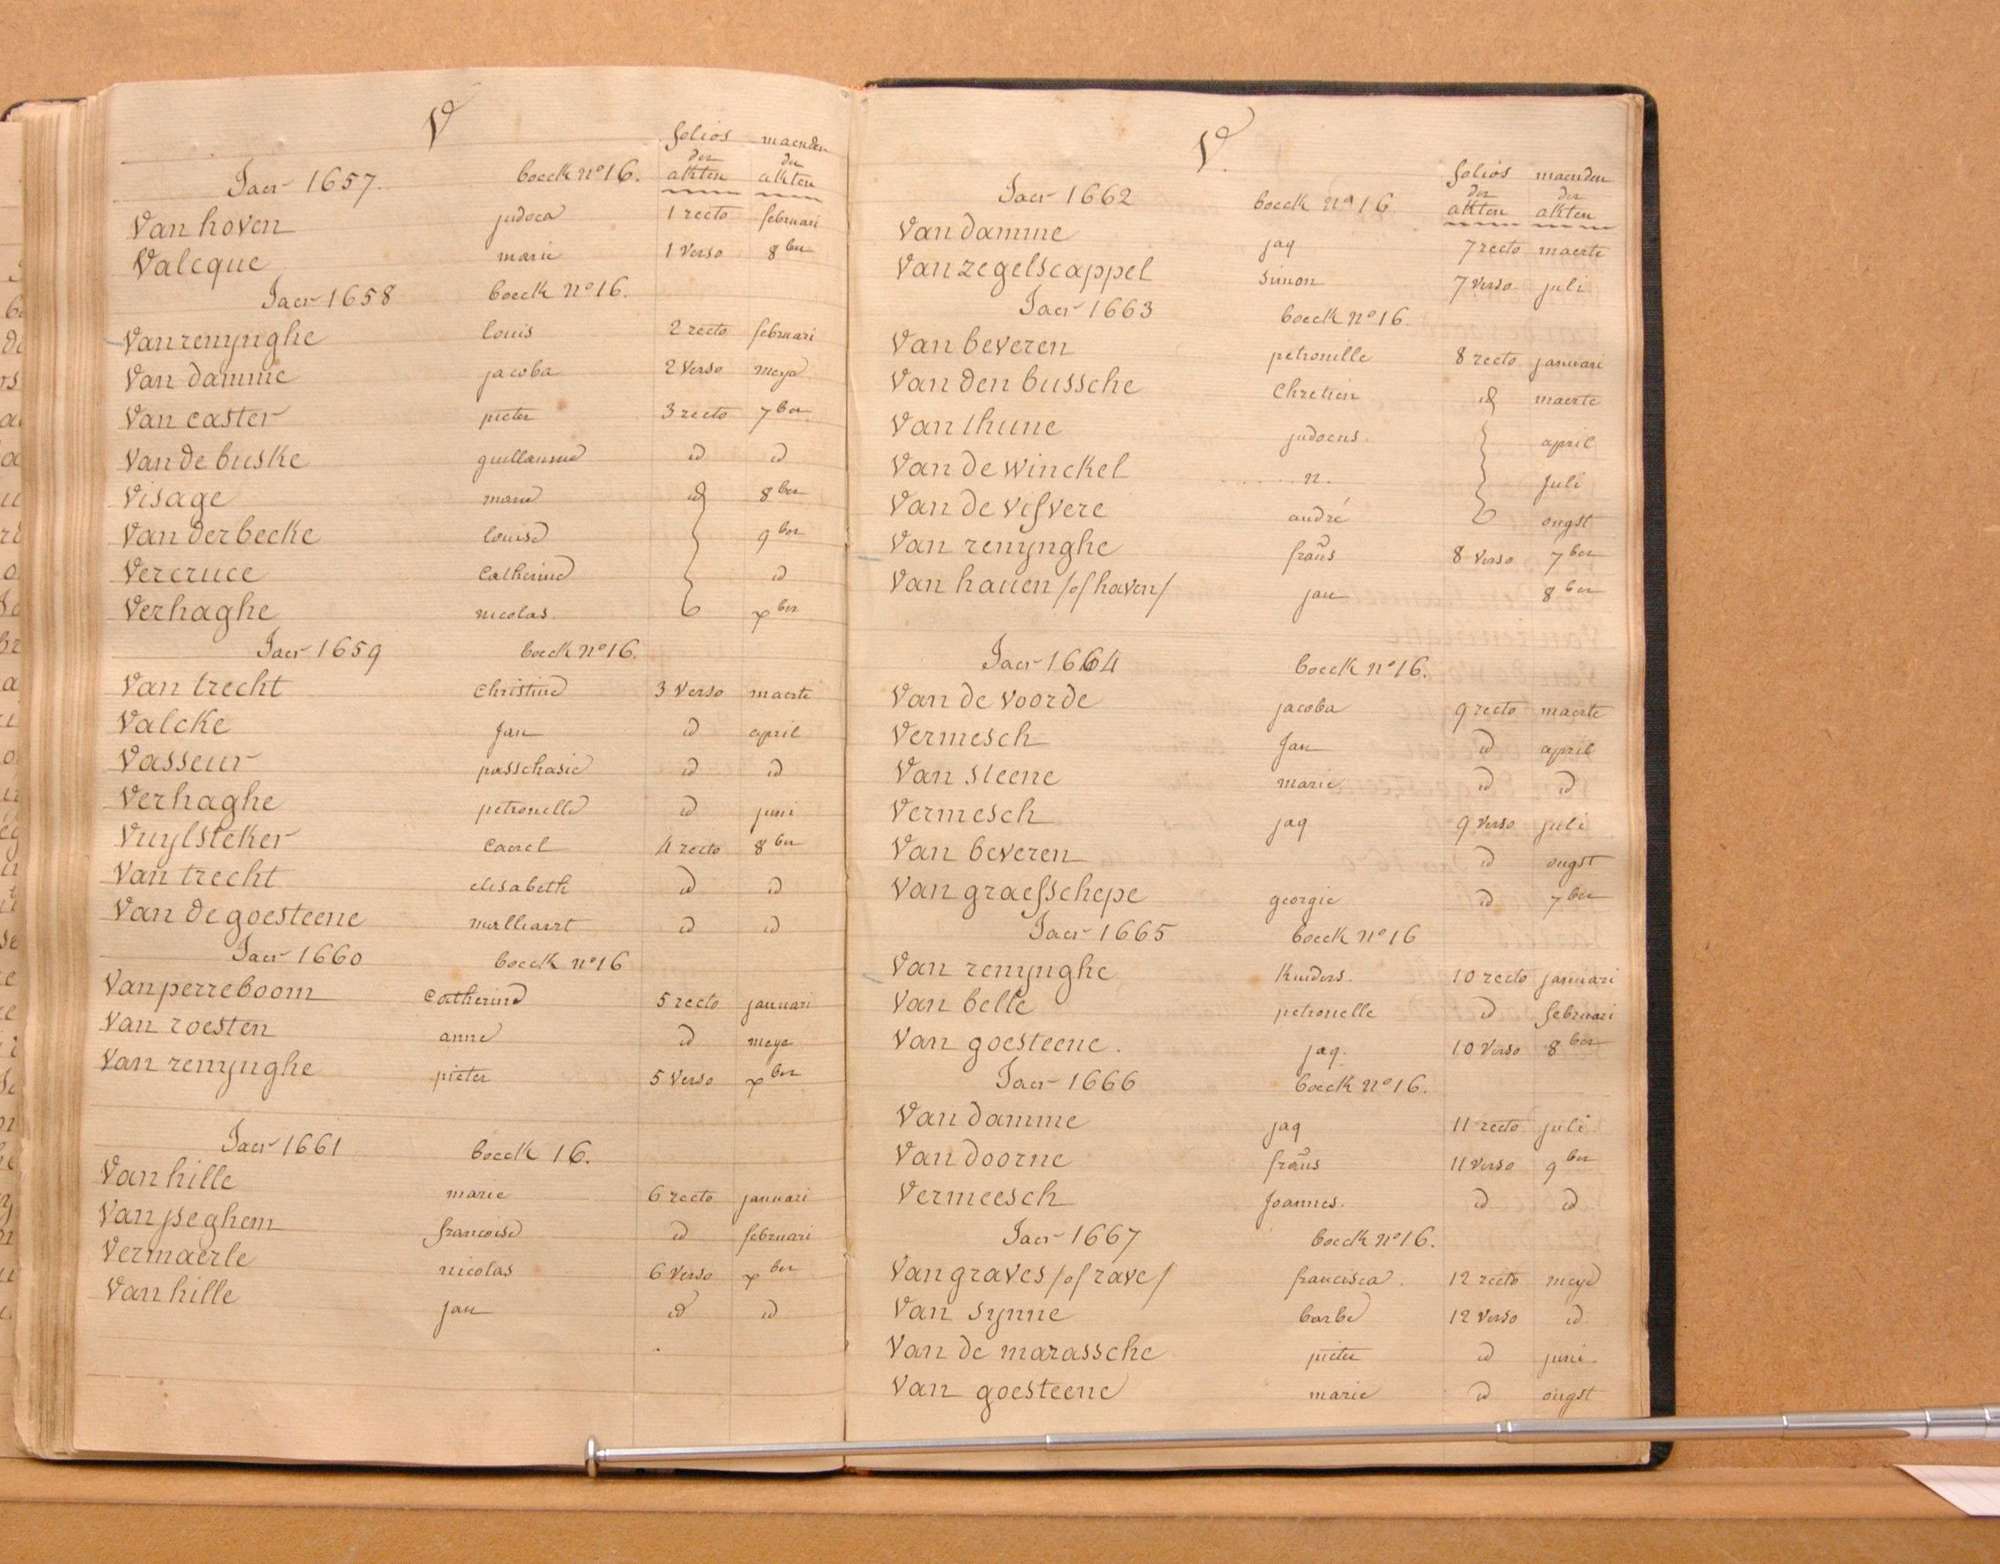 V
folios maenden
der der
Jaer 1657. boeck n° 16. akten akten
Van hoven judoca 1 recto februari
Valcque marie 1 verso 8ber
Jaer 1658 boeck n° 16.
Van renijnghe louis 2 recto februari
Van damme jacoba 2 verso meye
Van caster pieter 3 recto 7ber
Van de buske guillaume id id
Visage marie id 8ber
Van der becke louise 9ber
Vercruce Catherine id
Verhaghe nicolas. xber
Jaer 1659 boeck n° 16.
Van trecht Christine 3 verso maerte
Valcke Jan id april
Vasseur passchasie id id
Verhaghe petronelle id juni
Vuylsteker Caerel 4 recto 8ber
Van trecht elisabeth id id
Van de goesteene id id
Jaer 1660 boeck n° 16
Van perreboom Catherine 5 recto januari
Van roesten anne id meye
Van renijnghe pieter 5 verso xber
Jaer 1661 boeck 16.
Van hille marie 6 recto januari
Van iseghem francoise id februari
Vermaerle nicolas 6 verso xber
Van hille Jan id id
V.
folios maenden
der der
Jaer 1662 boeck n° 16 akten akten
Van damme jaq 7 recto maerte
Van zegelscappel simon 7 verso juli
Jaer 1663 boeck n° 16.
Van beveren petronille 8 recto januari
Van den bussche Chretien id maerte
Van thune judocus. april
Van de winckel n. Juli
Van de visvere andré ougst
Van renijnghe frans 8 verso 7ber
Van hauen /of haven/ jan 8ber
Jaer 1664 boeck n° 16.
Van de voorde jacoba 9 recto maerte
Vermesch Jan id april
Van steene marie id id
Vermesch jaq 9 verso juli
Van beveren id ougst
Van graefschepe georgie id 7ber
Jaer 1665 boeck n° 16
Van renijnghe kinders. 10 recto januari
Van belle petronelle id februari
Van goesteene. jaq. 10 verso 8ber
Jaer 1666 boeck n° 16.
Van damme jaq 11 recto juli
Van doorne frans 11 verso 9ber
Vermeesch Joannes. id id
Jaer 1667 boeck n° 16.
Van graves /of rave/ francisca. 12 recto meye
Van synne barbe 12 verso id
Van de marassche pieter id juni
Van goesteene marie id ougst